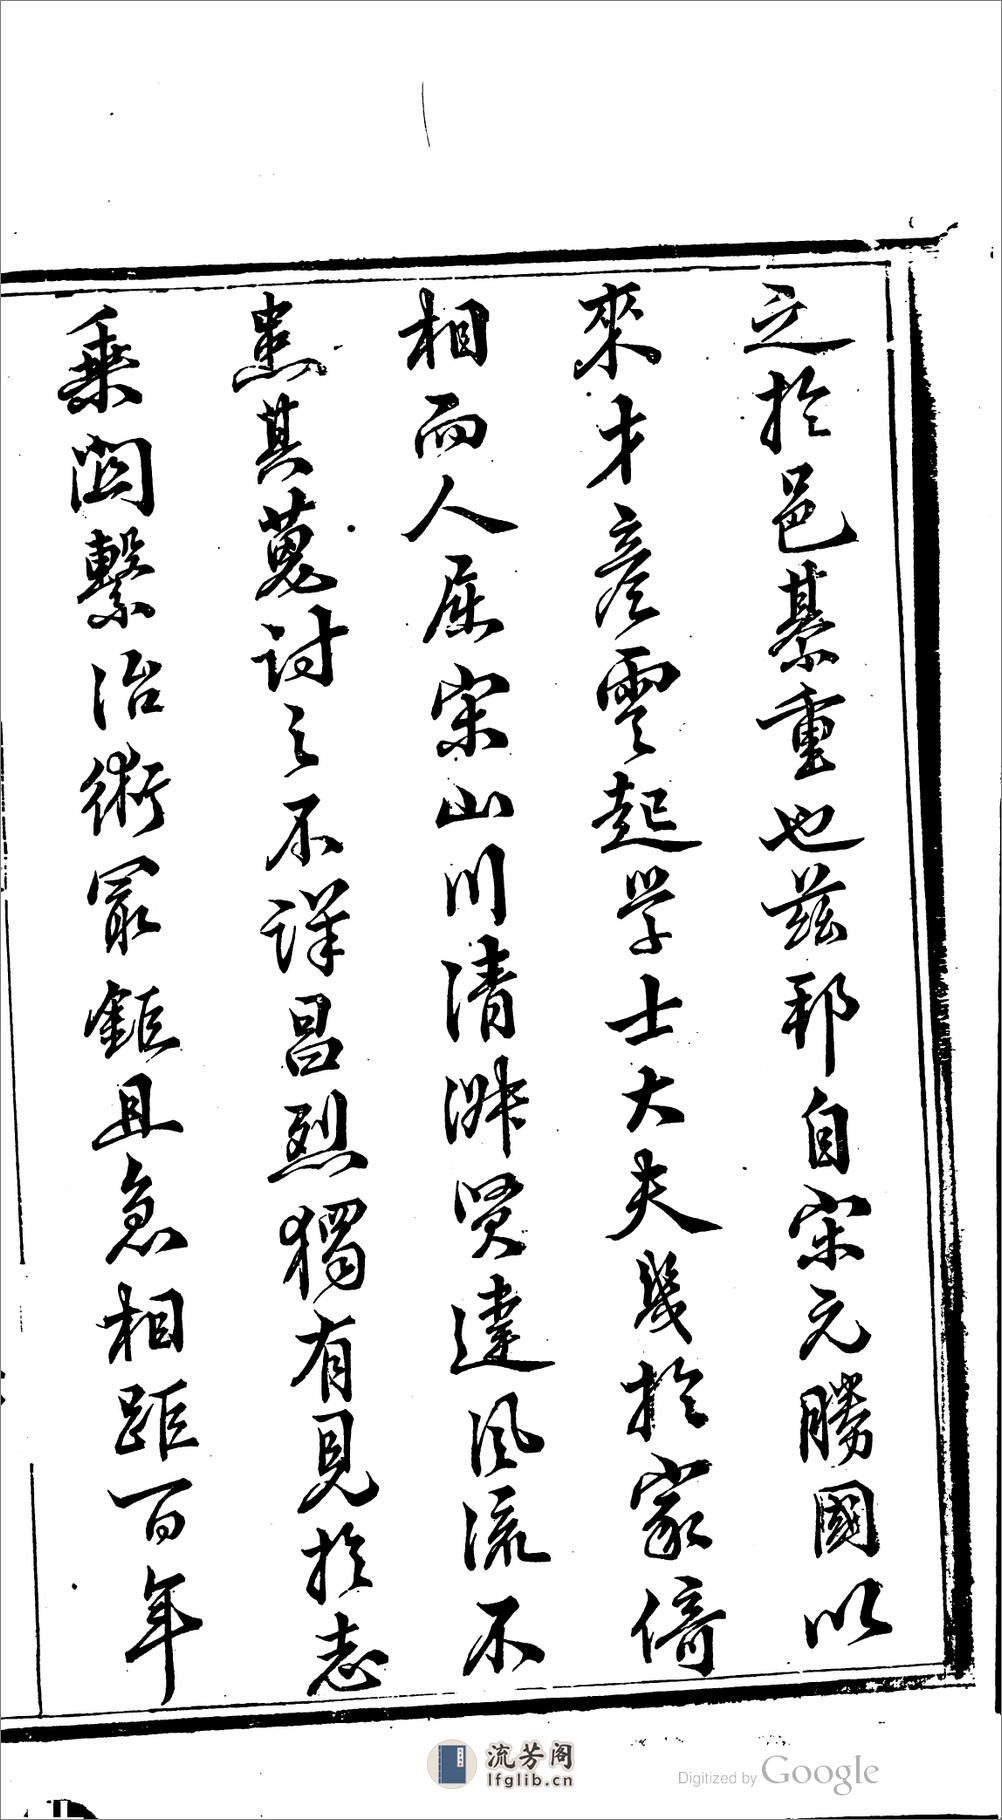 之於邑綦重也茲邦自宋元勝國以
來才彥雲起学士大夫幾於家倚
相而人屈宋山川清淑賢達風流不
患其蒐討之不詳昌烈獨有見於志
乘關繫治術最鉅且急相距百年
流芳阁
lfglib.cn
Digitized by Google